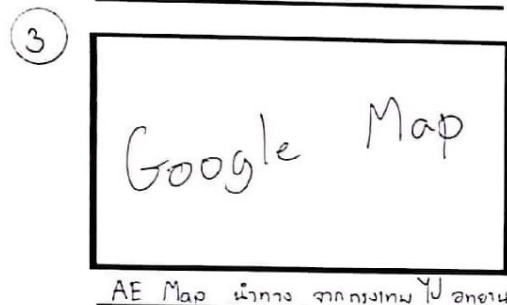 3
Google Map
AE Map นำทาง จากกรุงเทพ ไป